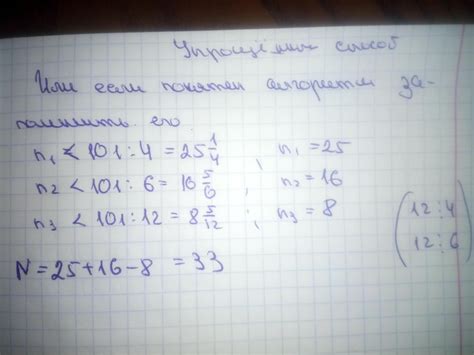 Упрощённый способ
Или если понятен алгоритм за-
помнить его.
n₁ < 101 : 4 = 25 1/4 , n₁ = 25
n₂ < 101 : 6 = 16 5/6 , n₂ = 16
n₃ < 101 : 12 = 8 5/12 ; n₃ = 8
(12 ⋮ 4
12 ⋮ 6)
N = 25 + 16 - 8 = 33